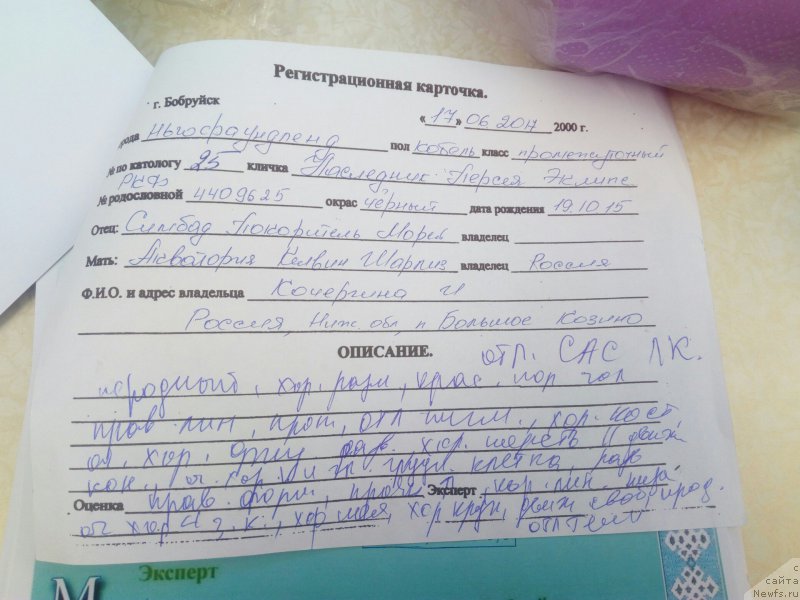 Регистрационная карточка.
г. Бобруйск «17» 06 2017 2000 г.
рода Ньюфаундленд пол кобель класс промежуточный
№ по катологу 25 кличка Наследник Персея Эклипс
РКФ
№ родословной 4409625 окрас чёрный дата рождения 19.10.15
Отец: Симбад Покоритель Морей владелец
Мать: Акватория Келвин Шарпиз владелец Россия
Ф.И.О. и адрес владельца Кочергина И
Россия, Ниж. обл, п Большое Козино
ОПИСАНИЕ. отл. САС ЛК.
породный, хор. разм, крас, хор гол
прав лин, проп, отл пигм., хор. кост,
оч, хор. хор. шерсть движ
кон, оч хор груд. клетка, разв
Оценка прав. форм, Эксперт хор. лин.
оч хор з. к., хор шея, хор круп, движ свободные.
отл темп
Эксперт
М
с
сайта
Newfs.ru